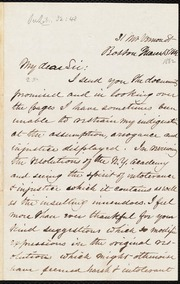 31 Mt Vernon St
Boston March
1882
My dear Sir:
I send you the documents
promised and in looking over
the pages I have sometimes been
unable to restrain my indignation
at the assumption, arrogance and
injustice displayed. In
the resolutions of the N.Y. Academy
and seeing the spirit of intolerance
& injustice which it contains as well
as the insulting innuendoes, I feel
more than ever thankful for your
kind suggestions which so modify
expressions in the original res-
olutions which might otherwise
have seemed harsh & intolerant